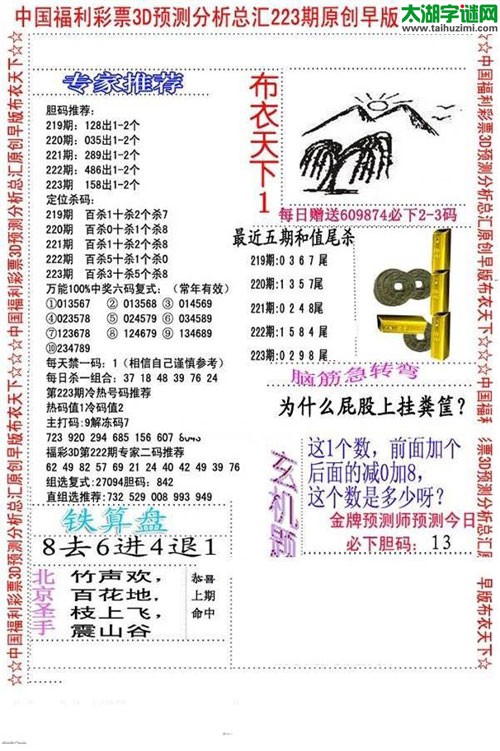 中国福利彩票3D预测分析总汇223期原创早版
太湖字谜网
www.taihuzimi.com
☆☆中国福利彩票3D预测分析总汇原创早版布衣天下☆☆
专家推荐
胆码推荐:
219期: 128出1-2个
220期: 035出1-2个
221期: 289出1-2个
222期: 486出1-2个
223期 158出1-2个
定位杀码:
219期 百杀1十杀2个杀7
220期 百杀0十杀1个杀8
221期 百杀0十杀1个杀8
222期 百杀3十杀4个杀8
223期 百杀3十杀5个杀8
万能100%中奖六码复式:(常年有效)
①013567 ② 013568 ③ 014569
④023578 ⑤ 024579 ⑥ 034589
⑦123678 ⑧ 124679 ⑨ 134689
⑩234789
每天禁一码: 1(相信自己谨慎参考)
每日杀一组合: 37 18 48 39 76 24
第223期冷热号码推荐
热码值1冷码值2
主打码: 9解冻码7
723 920 294 685 156 607
福彩3D第222期专家二码推荐
62 49 82 57 69 21 24 40 42 49 39 76
组选复式: 27094胆码: 842
直组选推荐: 732 529 008 993 949
铁算盘
8去6进4退1
北京圣手
竹声欢,
百花地,
枝上飞,
震山谷
恭喜
上期
命中
布衣天下1
每日赠送609874必下2-3码
最近五期和值尾杀
219期:0 3 6 7 尾
220期:1 3 5 7 尾
221期:0 2 4 8 尾
222期:1 5 8 4 尾
223期:0 2 9 8 尾
脑筋急转弯
为什么屁股上挂粪筐?
玄机题
这1个数,前面加个
后面的减0加8,
这个数是多少呀?
金牌预测师预测今日
必下胆码: 13